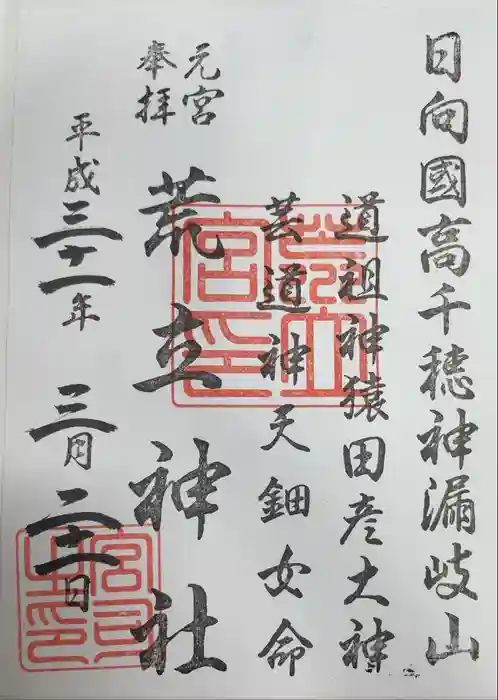 日向國高千穂神漏岐山
道祖神猿田彦大神
芸道神天鈿女命
元宮
奉拝
荒立神社
平成三十一年三月二十一日
荒立宮印
宮司之印